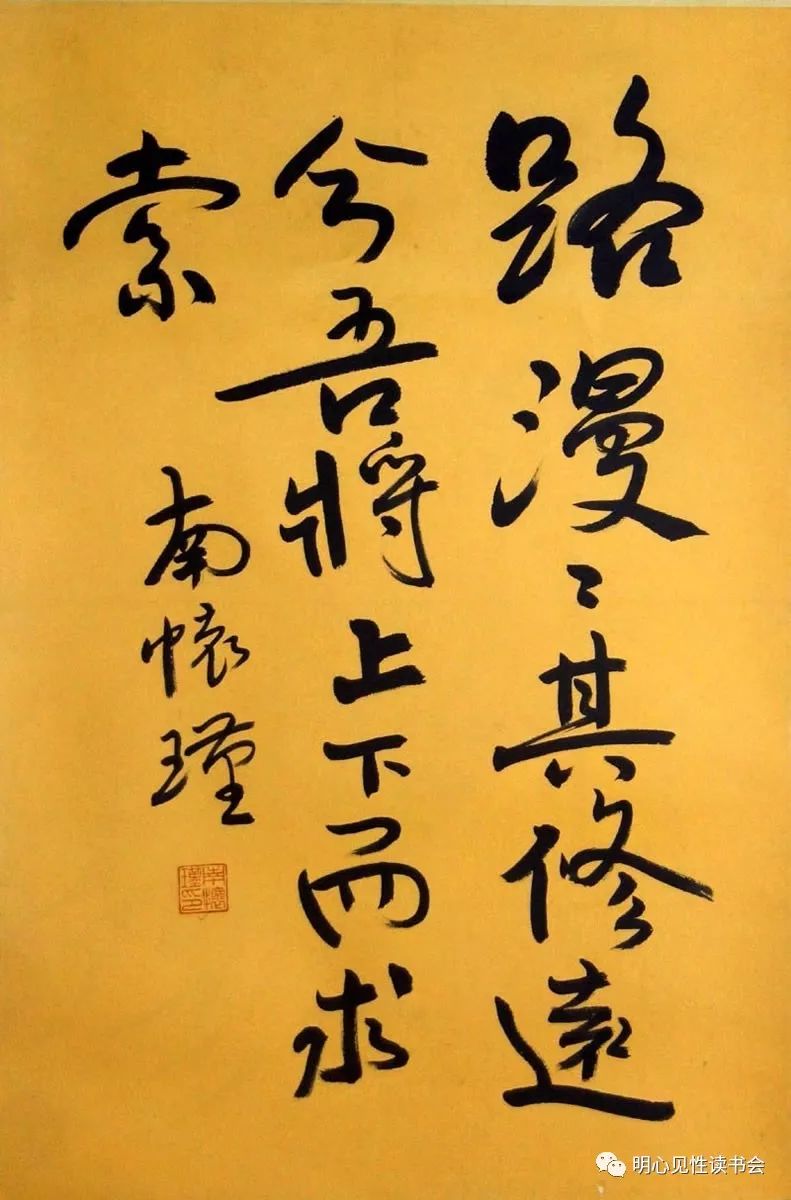 路漫〻其修遠
兮吾將上下而求
索
南懷瑾
南懷瑾印
明心见性读书会